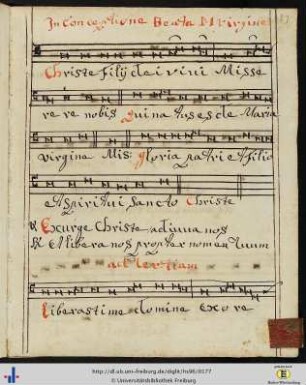 In Conceptione Beata M Virgine
Christe Filij dei vivi Misse
re re nobis quina tus es de Maria
virgine Mis: gloria patri et filio
et spiritui sancto Christe
Exurge Christe adiuva nos
Et libera nos propter nomen tuum
ad tertiam
Liberasti me domine ex ore
http://dl.ub.uni-freiburg.de/diglit/hs95/0177
© Universitätsbibliothek Freiburg